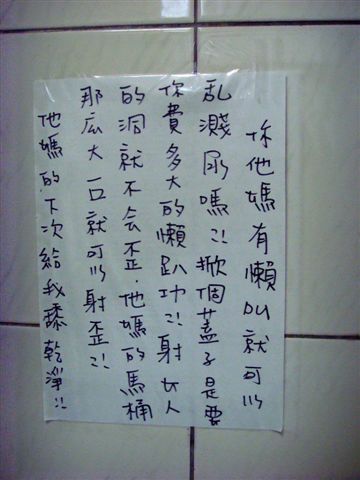 你他媽有懶叫就可以
乱濺尿嗎!!掀個蓋子是要
你費多大的懶趴功!!射女人
的洞就不会歪.他媽的馬桶
那広大一口就可以射歪!!
他媽的下次給我舔乾淨!!